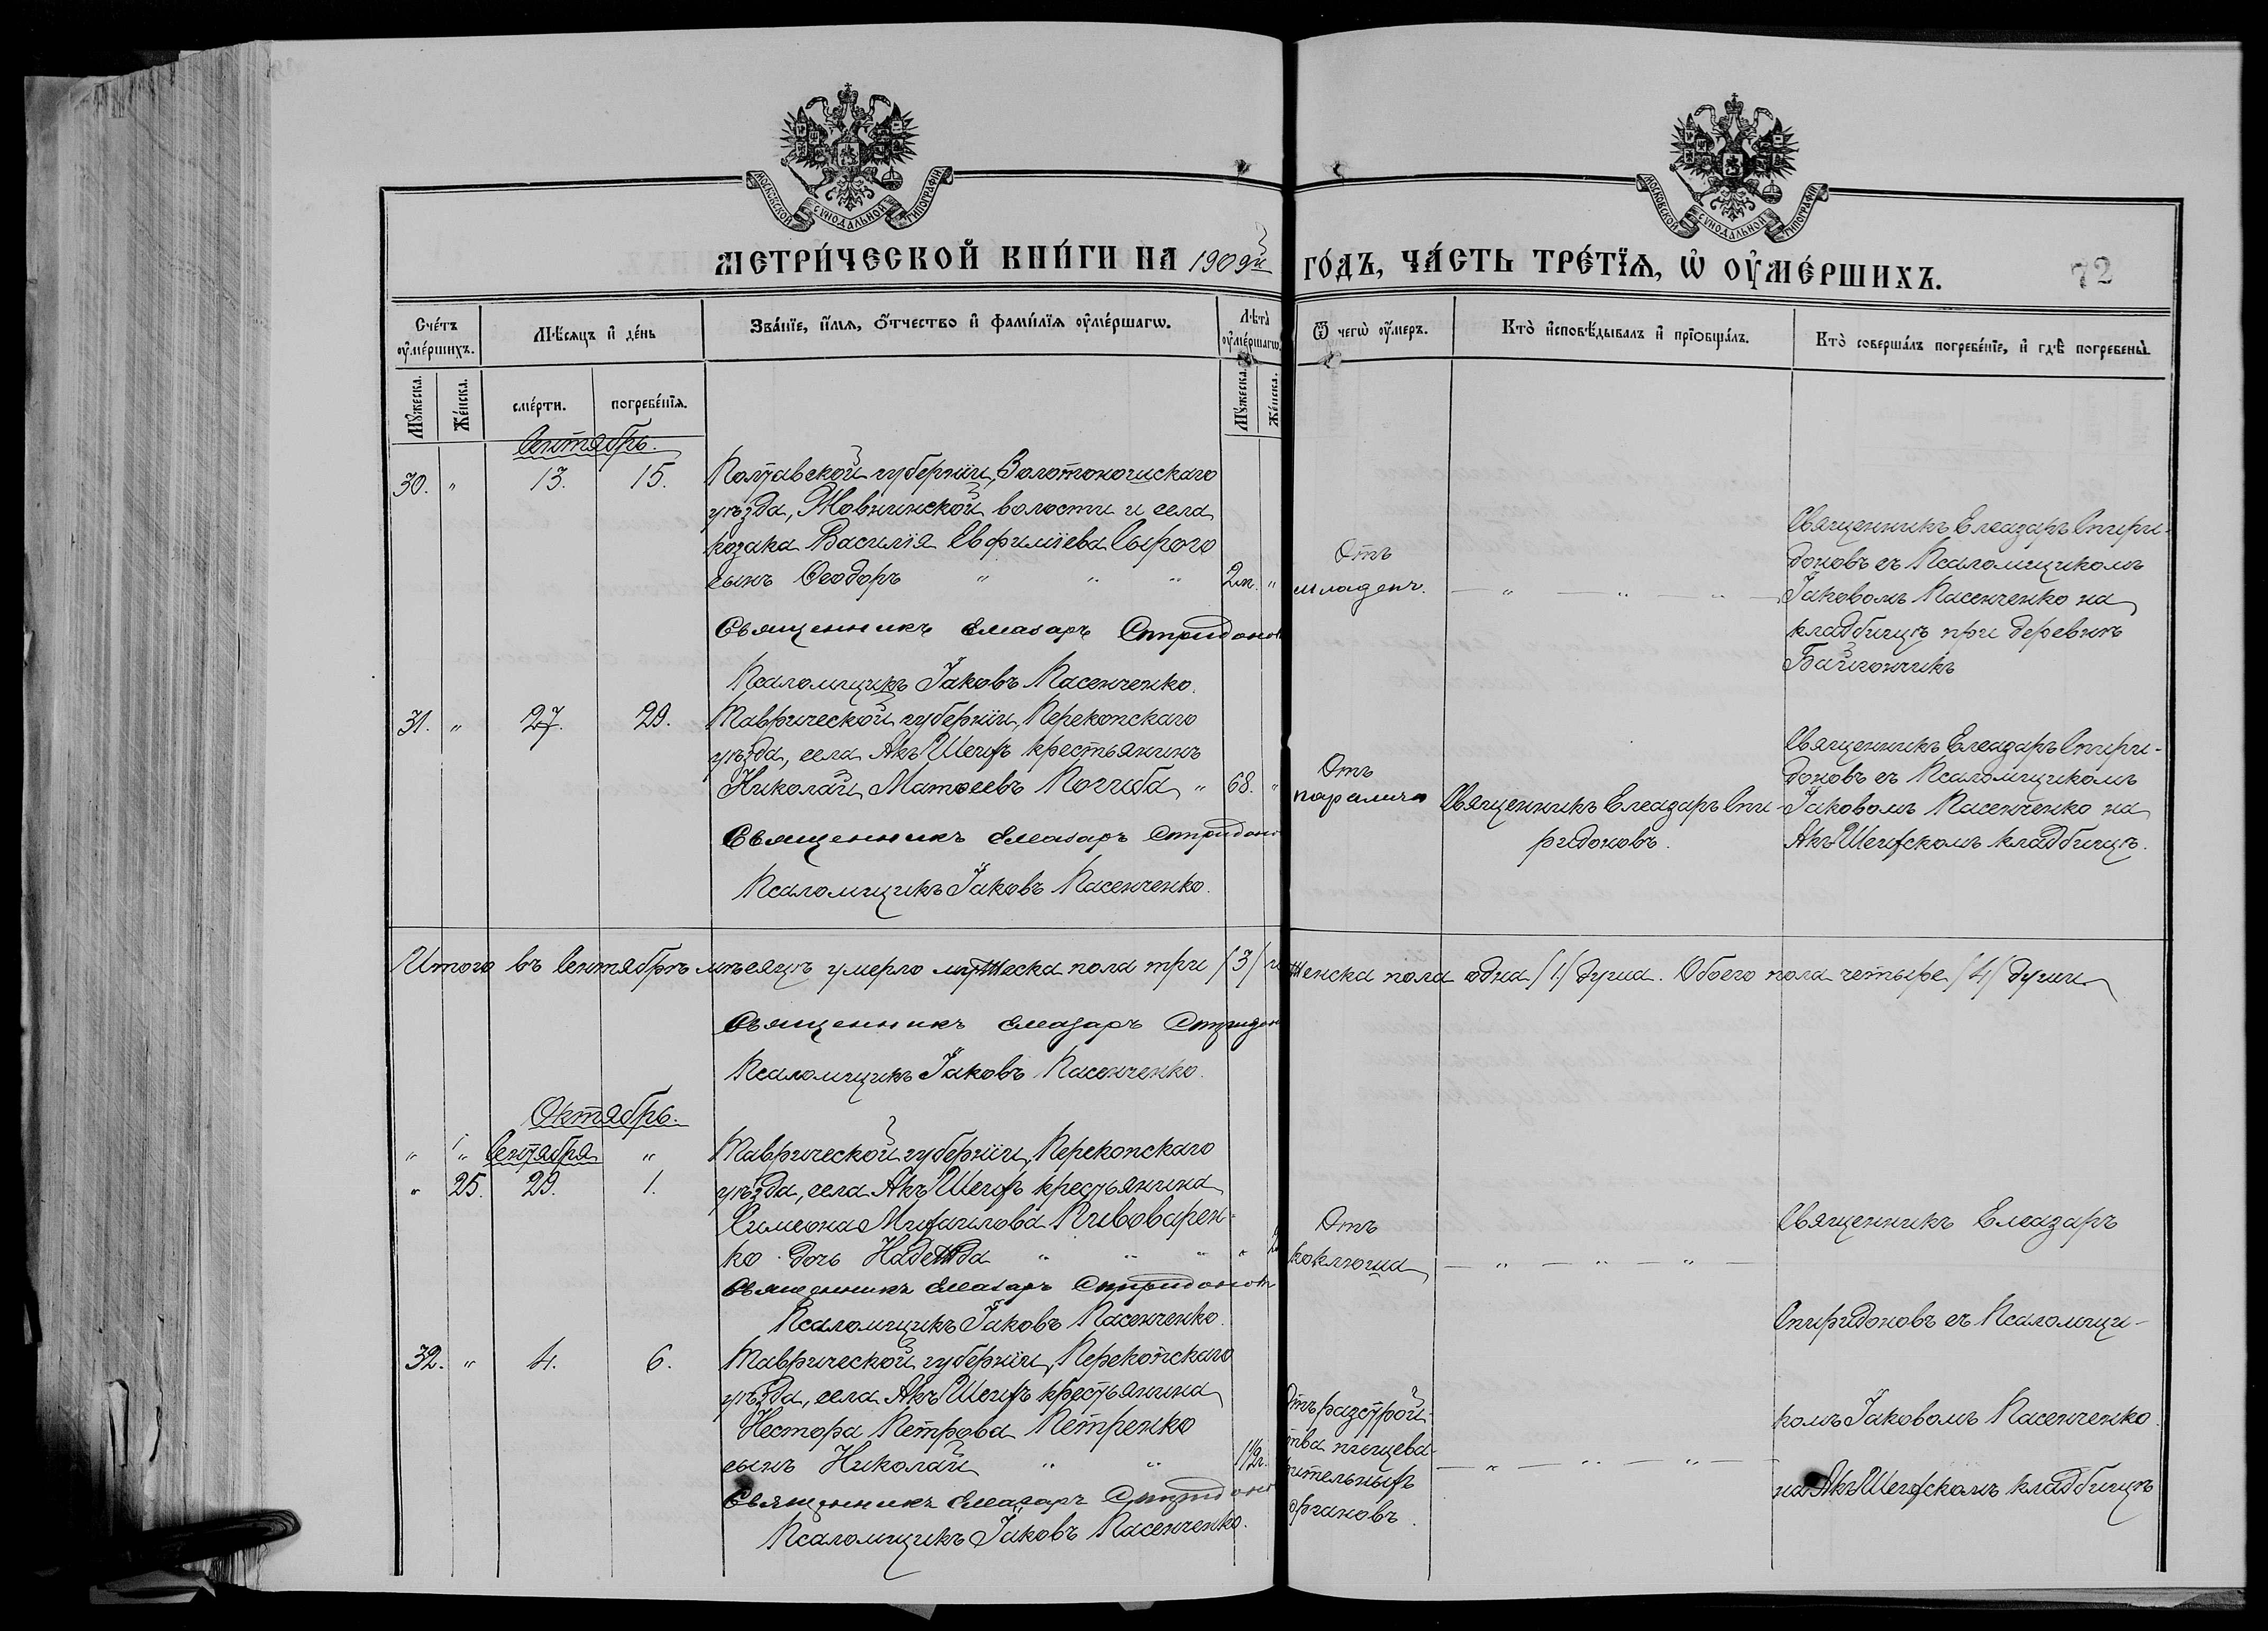 МОСКОВСКОЙ СѴНОДАЛЬНОЙ ТИПОГРАФІИ
МОСКОВСКОЙ СѴНОДАЛЬНОЙ ТИПОГРАФІИ
МЕТРИ́ЧЕСКОЙ КНИ́ГИ НА 1909й ГО́ДЪ, ЧА́СТЬ ТРЕ́ТЇѦ, Ѡ҆ ОУ҆МЕ́РШИХЪ.
72
Сче́тъ оу҆ме́ршихъ.
Мѣ́сяцъ и҆ де́нь
Зва́нїе, и҆́мя, ѻ҆́тчество и҆ фамилїя оу҆ме́ршагѡ.
Лѣ́та оу҆ме́ршагѡ.
Ѿ чегѡ̀ оу҆́меръ.
Кто̀ и҆сповѣ́дывалъ и҆ прїѡбща́лъ.
Кто̀ соверша́лъ погребе́нїе, и҆ гдѣ̀ погребены̀.
Мꙋ́жеска. Же́нска. сме́рти. погребе́нїя. Мꙋ́жеска. Же́нска.
Сентябрь.
30. " 13. 15. Полтавской губерніи, Золотоношскаго
уѣзда, Жовнинской волости и села
козака Василія Евфиміева Сырого
сынъ Ѳеодоръ " " " 2м. "
Священникъ Елеазаръ Спиридонов
Псаломщикъ Іаковъ Пасенченко.
Отъ
младенч.
— " — " — " —
Священникъ Елеазаръ Спири-
доновъ съ Псаломщикомъ
Іаковомъ Пасенченко на
кладбищѣ при деревнѣ
Байгончикъ
31. " 27. 29. Таврической губерніи, Перекопскаго
уѣзда, села Акъ Шеихъ крестьянинъ
Николай Матѳеевъ Погиба " 68. "
Священникъ Елеазаръ Спиридоно
Псаломщикъ Іаковъ Пасенченко.
Отъ
паралича
Священникъ Елеазаръ Спи-
ридоновъ.
Священникъ Елеазаръ Спири-
доновъ съ Псаломщикомъ
Іаковомъ Пасенченко на
Акъ Шеихскомъ кладбищѣ.
Итого въ Сентябрѣ мѣсяцѣ умерло мужеска пола три /3/ и женска пола одна /1/ душа. Обоего пола четыре /4/ души
Священникъ Елеазаръ Спиридон
Псаломщикъ Іаковъ Пасенченко.
Октябрь.
" " Сентября " Таврической губерніи, Перекопскаго
" 25. 29. 1. уѣзда, села Акъ Шеихъ крестьянина
Симеона Михаилова Пивоварен-
ко дочь Надежда " " " "
Священникъ Елеазаръ Спиридонов
Псаломщикъ Іаковъ Пасенченко.
Отъ
коклюша
— " — " — " —
Священникъ Елеазаръ
Спиридоновъ съ Псаломщи-
комъ Іаковомъ Пасенченко
на Акъ Шеихскомъ кладбищѣ
32. " 4. 6. Таврической губерніи, Перекопскаго
уѣзда, села Акъ Шеихъ крестьянина
Нестора Петрова Петренко
сынъ Николай " " 1½г.
Священникъ Елеазаръ Спиридоно
Псаломщикъ Іаковъ Пасенченко.
Отъ разстрой-
ства пищева-
рительныхъ
органовъ.
— " — " — " —